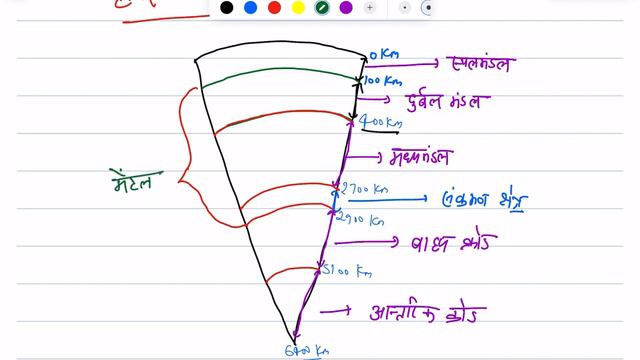 0 Km
स्थलमंडल
100 Km
दुर्बल मंडल
400 Km
मध्यमंडल
मेंटल
2700 Km
संक्रमण क्षेत्र
2900 Km
बाह्य क्रोड
5100 Km
आन्तरिक क्रोड
6400 Km